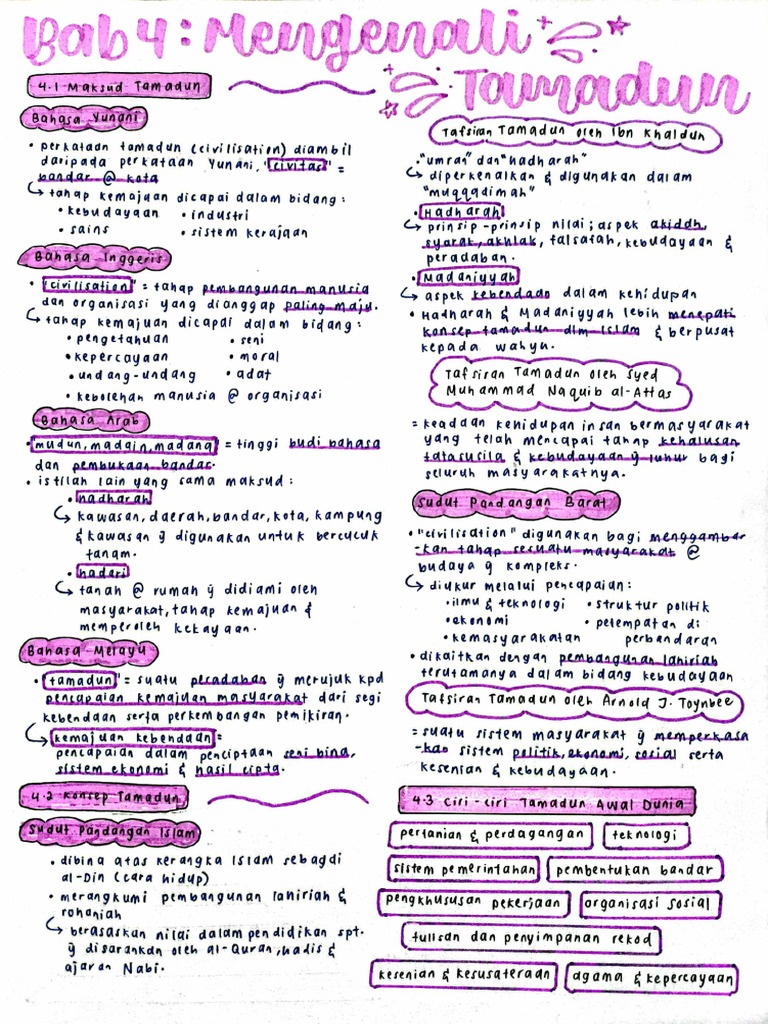 Bab 4 : Mengenali
Tamadun
4.1 Maksud Tamadun
Bahasa Yunani
• perkataan tamadun (civilisation) diambil
daripada perkataan Yunani, "civitas" =
bandar @ kota
↳ tahap kemajuan dicapai dalam bidang:
• kebudayaan • industri
• sains • sistem kerajaan
Bahasa Inggeris
• "civilisation" = tahap pembangunan manusia
dan organisasi yang dianggap paling maju.
↳ tahap kemajuan dicapai dalam bidang:
• pengetahuan • seni
• kepercayaan • moral
• undang-undang • adat
• kebolehan manusia @ organisasi
Bahasa Arab
• mudun, madain, madana = tinggi budi bahasa
dan pembukaan bandar.
• istilah lain yang sama maksud:
• hadharah
↳ kawasan, daerah, bandar, kota, kampung
& kawasan ŷ digunakan untuk bercucuk
tanam.
• hadari
↳ tanah @ rumah ŷ didiami oleh
masyarakat, tahap kemajuan &
memperoleh kekayaan.
Bahasa Melayu
• "tamadun" = suatu peradaban ŷ merujuk kpd
pencapaian kemajuan masyarakat dari segi
kebendaan serta perkembangan pemikiran.
↳ kemajuan kebendaan =
pencapaian dalam penciptaan seni bina,
sistem ekonomi & hasil cipta.
4.2 Konsep Tamadun
Sudut Pandangan Islam
• dibina atas kerangka Islam sebagai
al-Din (cara hidup)
• merangkumi pembangunan lahiriah &
rohaniah
↳ berasaskan nilai dalam pendidikan spt.
ŷ disarankan oleh al-Quran, hadis &
ajaran Nabi.
Tafsiran Tamadun oleh Ibn Khaldun
• "umran" dan "hadharah"
↳ diperkenalkan & digunakan dalam
"muqqadimah"
• Hadharah
↳ prinsip-prinsip nilai; aspek akidah,
syarak, akhlak, falsafah, kebudayaan &
peradaban.
• Madaniyyah
↳ aspek kebendaan dalam kehidupan
• Hadharah & Madaniyyah lebih menepati
konsep tamadun dlm Islam & berpusat
kepada wahyu.
Tafsiran Tamadun oleh Syed
Muhammad Naquib al-Attas
= keadaan kehidupan insan bermasyarakat
yang telah mencapai tahap kehalusan
tatasusila & kebudayaan ŷ luhur bagi
seluruh masyarakatnya.
Sudut Pandangan Barat
• "civilisation" digunakan bagi menggambar
-kan tahap sesuatu masyarakat @
budaya ŷ kompleks.
↳ diukur melalui pencapaian:
• ilmu & teknologi • struktur politik
• ekonomi • petempatan di
• kemasyarakatan perbandaran
• dikaitkan dengan pembangunan lahiriah
terutamanya dalam bidang kebudayaan
Tafsiran Tamadun oleh Arnold J. Toynbee
= suatu sistem masyarakat ŷ memperkasa
-kan sistem politik, ekonomi, sosial serta
kesenian & kebudayaan.
4.3 Ciri-ciri Tamadun Awal Dunia
pertanian & perdagangan teknologi
sistem pemerintahan pembentukan bandar
pengkhususan pekerjaan organisasi sosial
tulisan dan penyimpanan rekod
kesenian & kesusateraan agama & kepercayaan